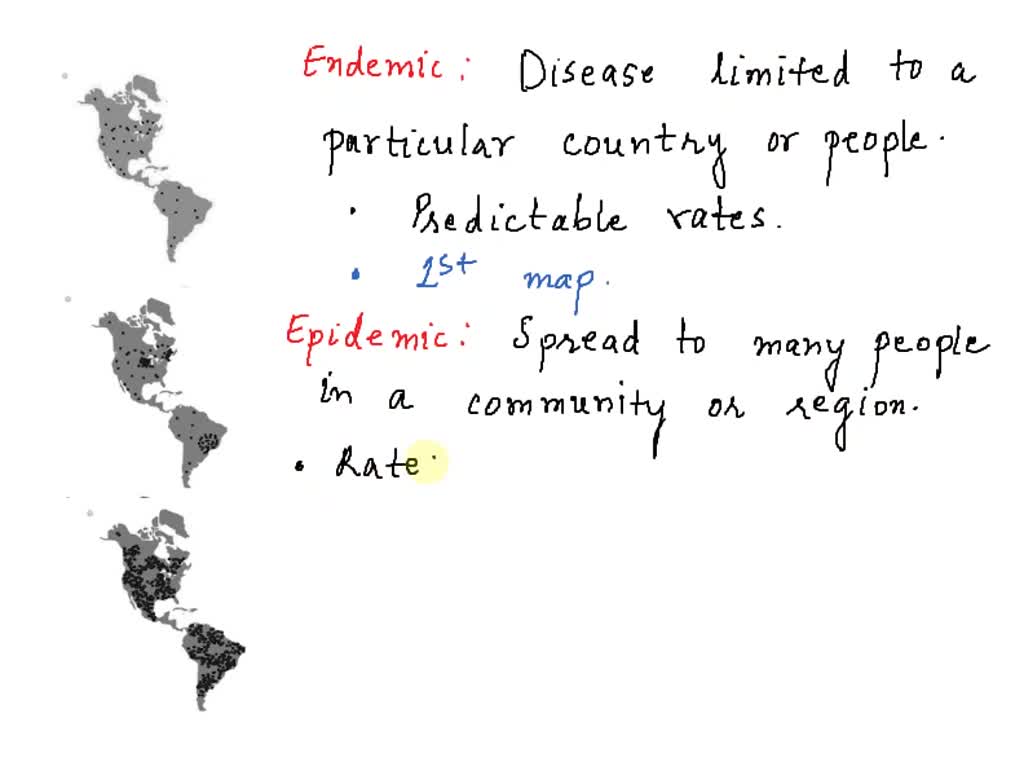 Endemic: Disease limited to a
particular country or people.
• Predictable rates.
• 1st map.
Epidemic: Spread to many people
in a community or region.
• Rate